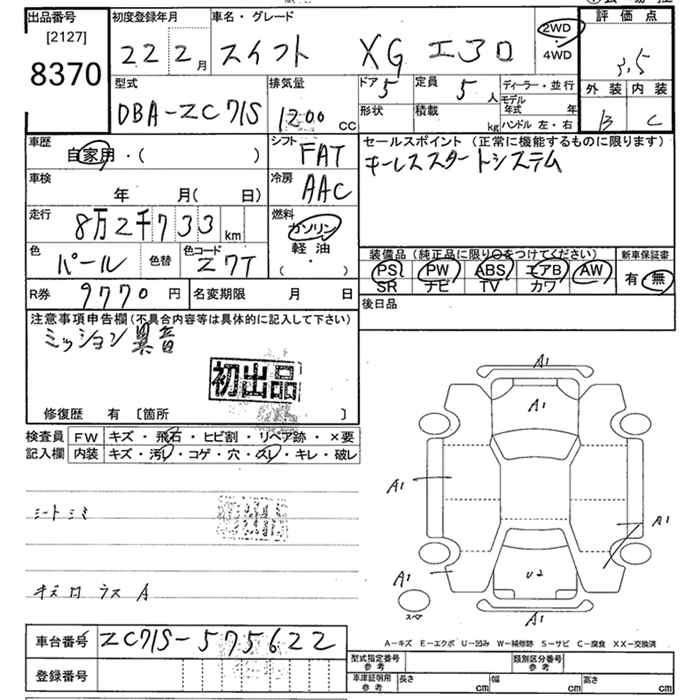 出品番号 初度登録年月 車名・グレード 評価点
[2127]
8370
22 2月 スイフト XG エアロ 2WD・4WD 3.5
型式 排気量 ドア 5 定員 5人 ディーラー・並行 外装 内装
DBA-ZC71S 1200cc 形状 積載 kg モデル年式 年 B C
ハンドル 左・右
車歴 シフト セールスポイント(正常に機能するものに限ります)
自家用・( ) FAT キーレススタートシステム
車検 冷房
年 月(日) AAC
走行 燃料
8万2千733km ガソリン
軽油
( ・ )
色 パール 色替 色コード Z7T
装備品(純正品に限り○をつけてください) 新車保証書
PS PW ABS エアB AW 有・無
SR ナビ TV カワ
R券 9770円 名変期限 月 日
後日品
注意事項申告欄(不具合内容等は具体的に記入して下さい)
ミッション異音
初出品
修復歴 有 〔箇所 〕
検査員 FW キズ・飛石・ヒビ割・リペア跡・×要
記入欄 内装 キズ・汚レ・コゲ・穴・スレ・キレ・破レ
シートシミ
A1
A1
A1
A1
A1
U2
A1
スペア
A-キズ E-エクボ U-凹み W-補修跡 S-サビ C-腐食 XX-交換済
車台番号 ZC71S-575622
登録番号
型式指定番号 参考 類別区分番号 参考
車庫証明用 参考 長さ cm 幅 cm 高さ cm